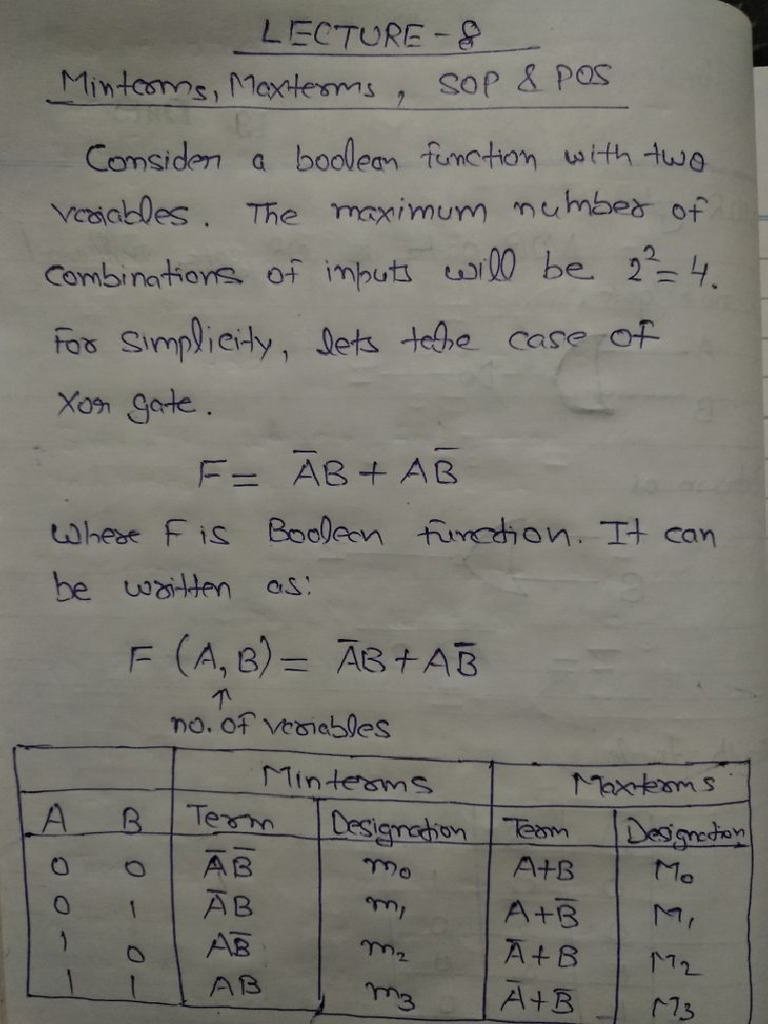 LECTURE-8
Minterms, Maxterms, SOP & POS
Consider a boolean function with two
variables. The maximum number of
combinations of inputs will be 2²=4.
For simplicity, lets take case of
Xor gate.
F = A̅B + AB̅
Where F is Boolean function. It can
be written as:
F (A, B) = A̅B + AB̅
↑
no. of variables
Minterms Maxterms
A B Term Designation Term Designation
0 0 A̅B̅ m₀ A+B M₀
0 1 A̅B m₁ A+B̅ M₁
1 0 AB̅ m₂ A̅+B M₂
1 1 AB m₃ A̅+B̅ M₃